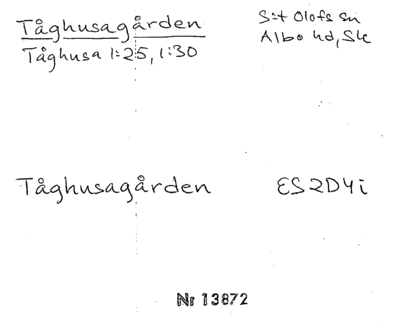 Tåghusagården
S:t Olofs sn
Tåghusa 1:25, 1:30
Albo hd, Sk
Tåghusagården
ES2D4i
Nr 13872